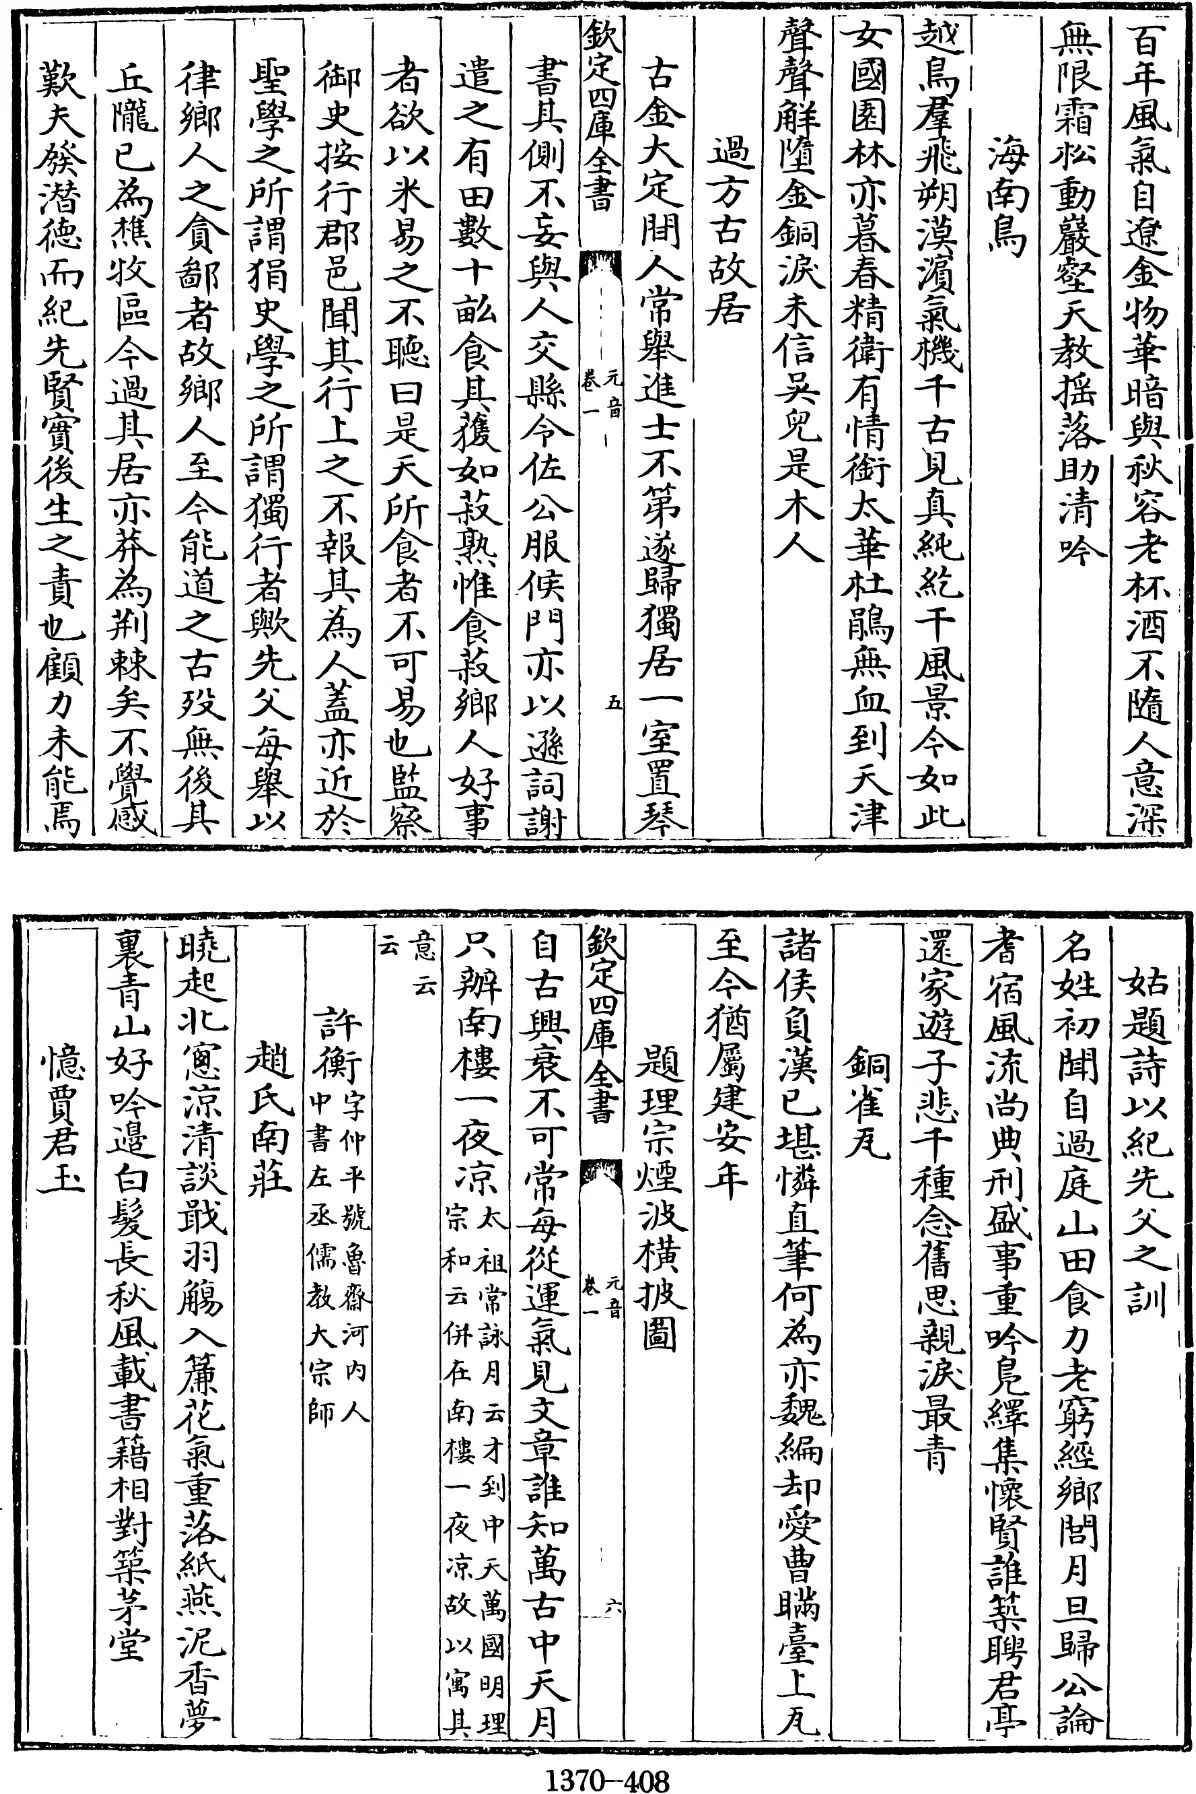 百年風氣自遼金物華暗與秋容老杯酒不隨人意深
無限霜松動巖壑天教揺落助清吟
海南鳥
越鳥羣飛朔漠濵氣機千古見真純紇干風景今如此
女國園林亦暮春精衛有情銜太華杜鵑無血到天津
聲聲解墮金銅淚未信吴兒是木人
過方古故居
古金大定間人常舉進士不第遂歸獨居一室置琴
欽定四庫全書
元音
卷一
五
書其側不妄與人交縣令佐公服候門亦以遜詞謝
遣之有田數十畝食其獲如菽熟惟食菽鄉人好事
者欲以米易之不聽曰是天所食者不可易也監察
御史按行郡邑聞其行上之不報其為人蓋亦近於
聖學之所謂狷史學之所謂獨行者歟先父每舉以
律鄉人之貪鄙者故鄉人至今能道之古殁無後其
丘隴已為樵牧區今過其居亦莽為荆棘矣不覺感
歎夫發潜德而紀先賢實後生之責也顧力未能焉
姑題詩以紀先父之訓
名姓初聞自過庭山田食力老窮經鄉閭月旦歸公論
耆宿風流尚典刑盛事重吟鳧繹集懷賢誰築聘君亭
還家遊子悲千種念舊思親淚最青
銅雀瓦
諸侯負漢已堪憐直筆何為亦魏編却愛曹瞞臺上瓦
至今猶屬建安年
題理宗煙波橫披圖
欽定四庫全書
元音
卷一
六
自古興衰不可常每從運氣見文章誰知萬古中天月
只辦南樓一夜凉太祖常詠月云才到中天萬國明理
宗和云併在南樓一夜凉故以寓其
意云
云
許衡字仲平號魯齋河内人
中書左丞儒教大宗師
趙氏南莊
曉起北窻涼清談戢羽觴入簾花氣重落紙燕泥香夢
裏青山好吟邊白髮長秋風載書籍相對築茅堂
憶賈君玉
1370—408